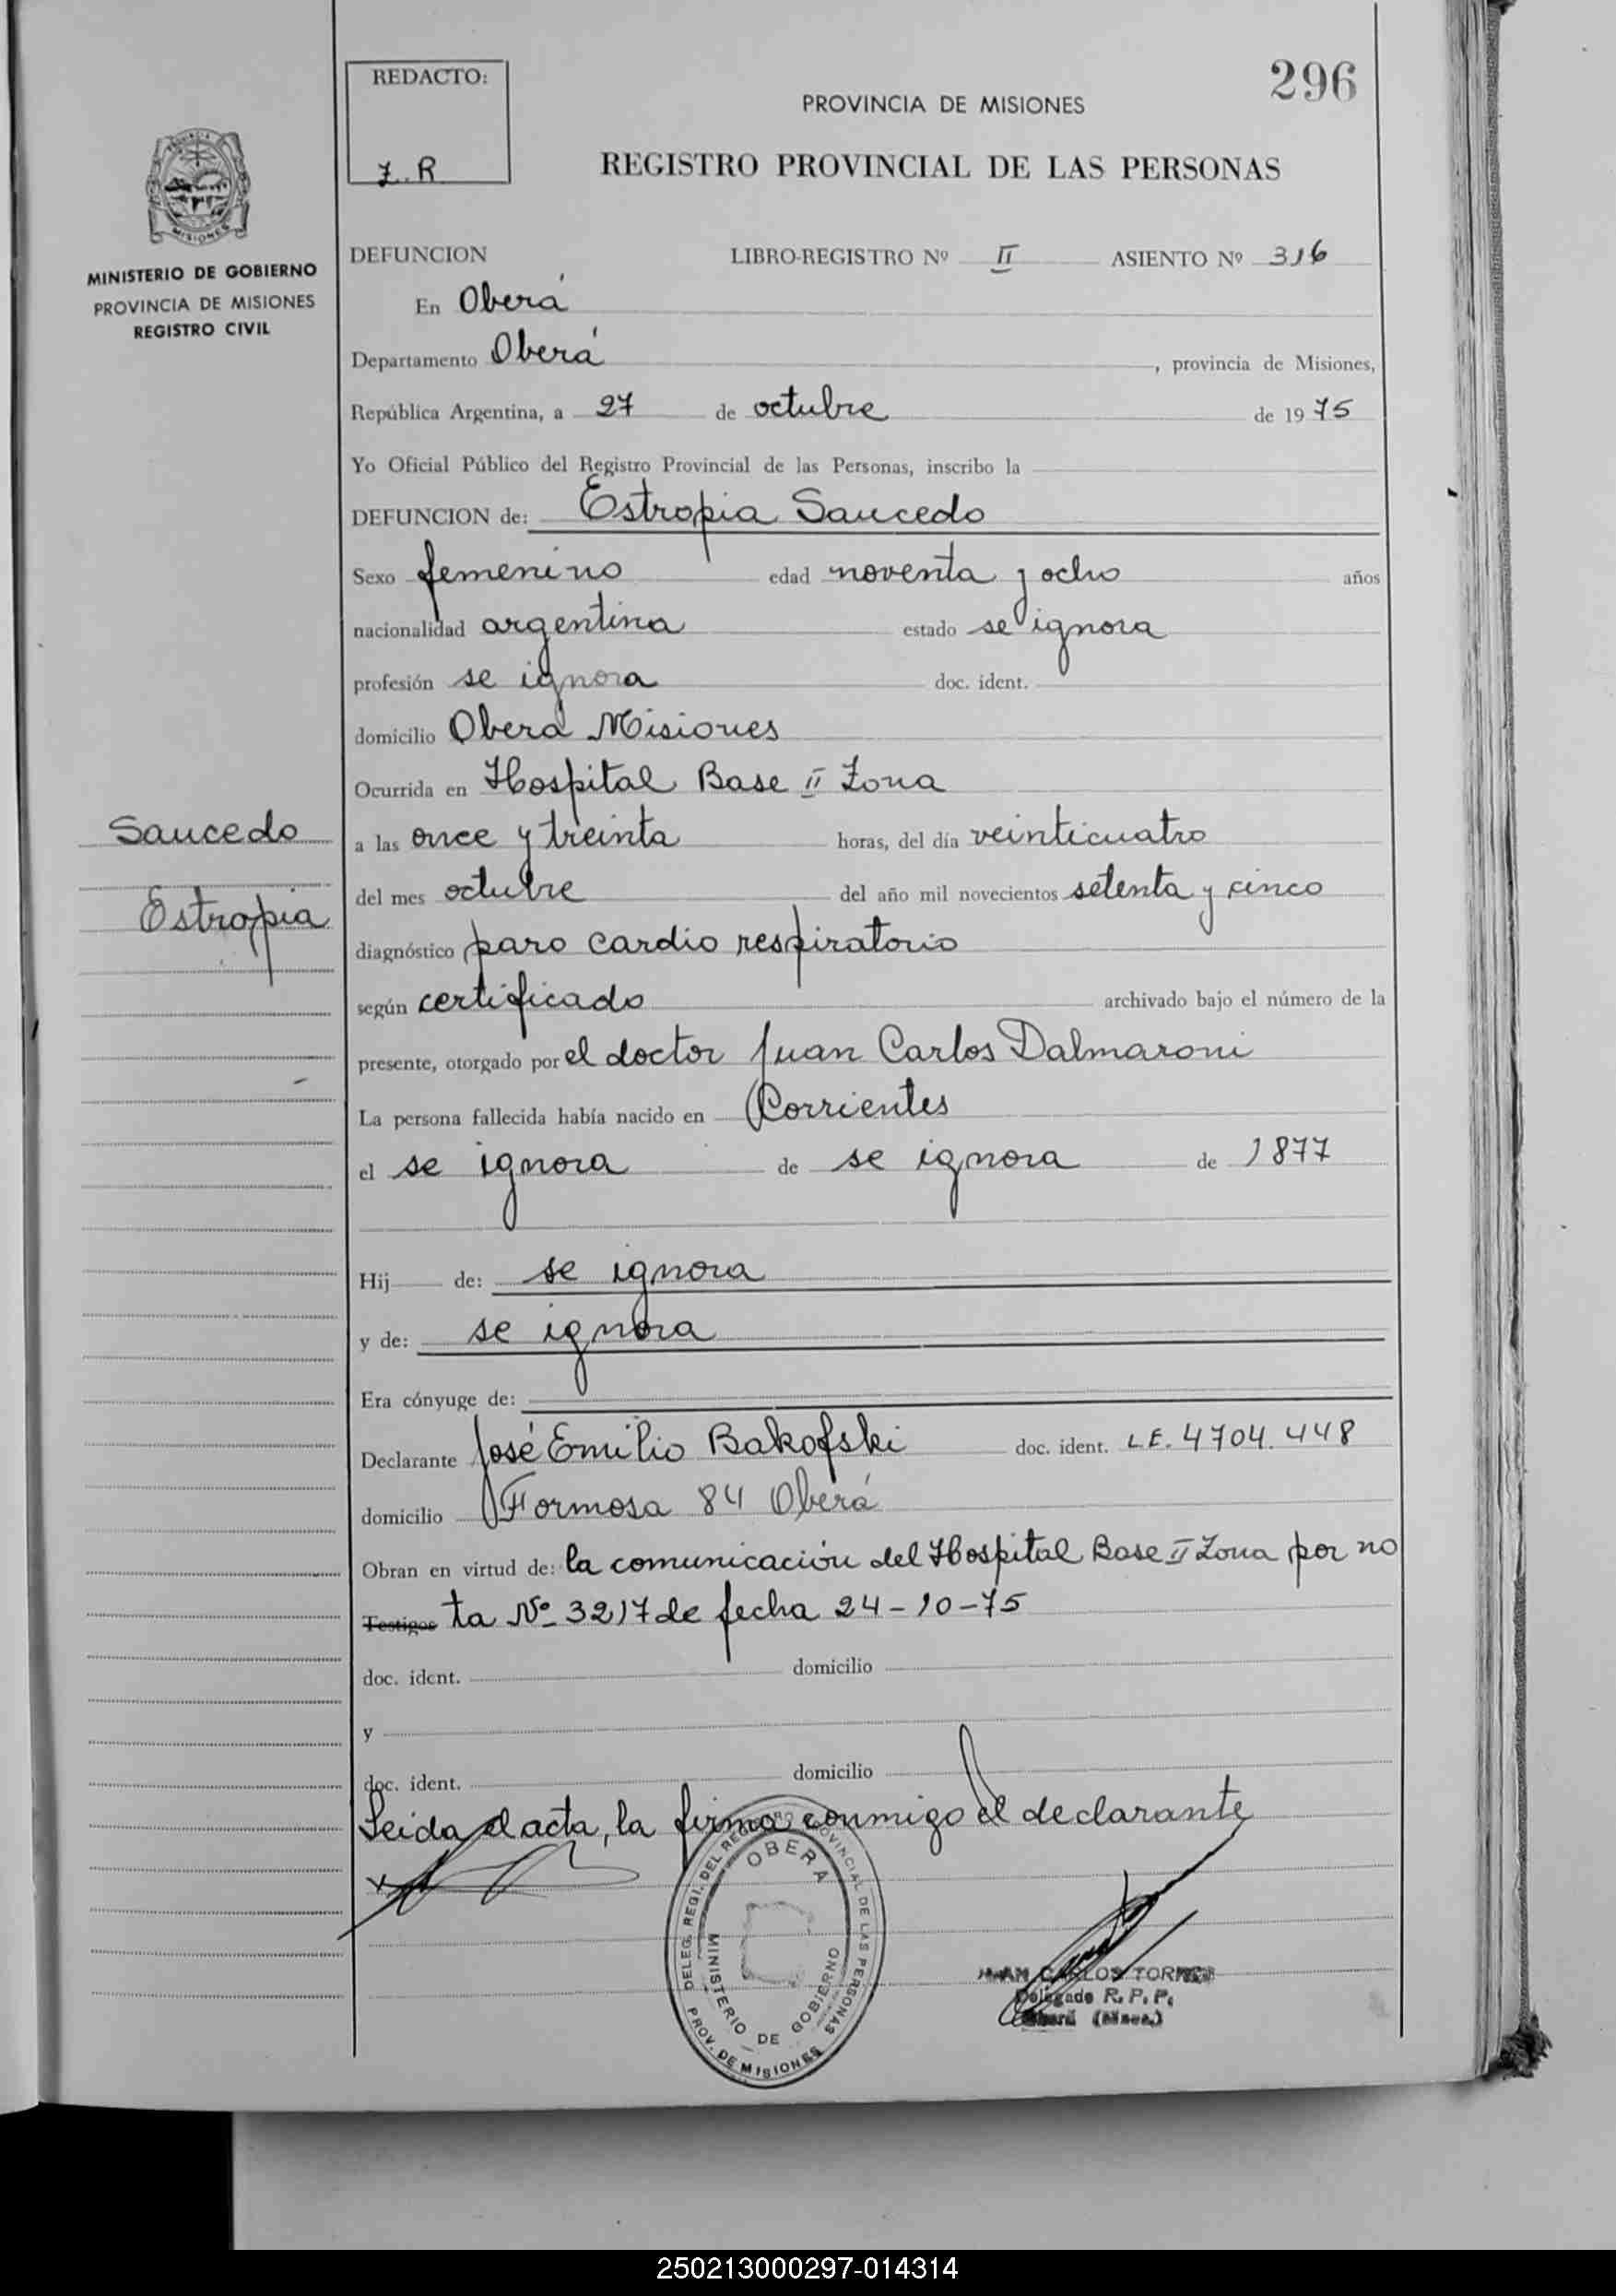 REDACTO:
Z.R
296
PROVINCIA DE MISIONES
REGISTRO PROVINCIAL DE LAS PERSONAS
MISIONES
MINISTERIO DE GOBIERNO
PROVINCIA DE MISIONES
REGISTRO CIVIL
DEFUNCION LIBRO-REGISTRO Nº II ASIENTO Nº 316
En Oberá
Departamento Oberá, provincia de Misiones,
República Argentina, a 27 de octubre de 1975
Yo Oficial Público del Registro Provincial de las Personas, inscribo la
DEFUNCION de: Estropia Saucedo
Sexo femenino edad noventa y ocho años
nacionalidad argentina estado se ignora
profesión se ignora doc. ident.
domicilio Oberá Misiones
Ocurrida en Hospital Base II Zona
Saucedo
Estropia
a las once y treinta horas, del día veinticuatro
del mes octubre del año mil novecientos setenta y cinco
diagnóstico paro cardio respiratorio
según certificado archivado bajo el número de la
presente, otorgado por el doctor Juan Carlos Dalmaroni
La persona fallecida había nacido en Corrientes
el se ignora de se ignora de 1877
Hij de: se ignora
y de: se ignora
Era cónyuge de:
Declarante José Emilio Bakofski doc. ident. L.E. 4704.448
domicilio Formosa 84 Oberá
Obran en virtud de: la comunicación del Hospital Base II Zona por no
Testigos ta Nº 3217 de fecha 24-10-75
doc. ident. domicilio
y
doc. ident. domicilio
Leida el acta, la firma conmigo el declarante
DELEG. REGI. DEL REGISTRO PROVINCIAL DE LAS PERSONAS
OBERA
MINISTERIO DE GOBIERNO
PROV. DE MISIONES
JUAN CARLOS TORRES
Delegado R. P. P.
Oberá (Mnes.)
250213000297-014314